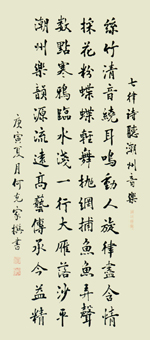 七律詩聽潮州音樂
絲竹清音繞耳鳴動人旋律盡含情
採花粉蝶蝶輕舞拋網捕魚魚弄聲
數點寒鴉臨水淺一行大雁落沙平
潮州樂韻源流遠高藝傳承今益精
庚寅夏月何克撰書